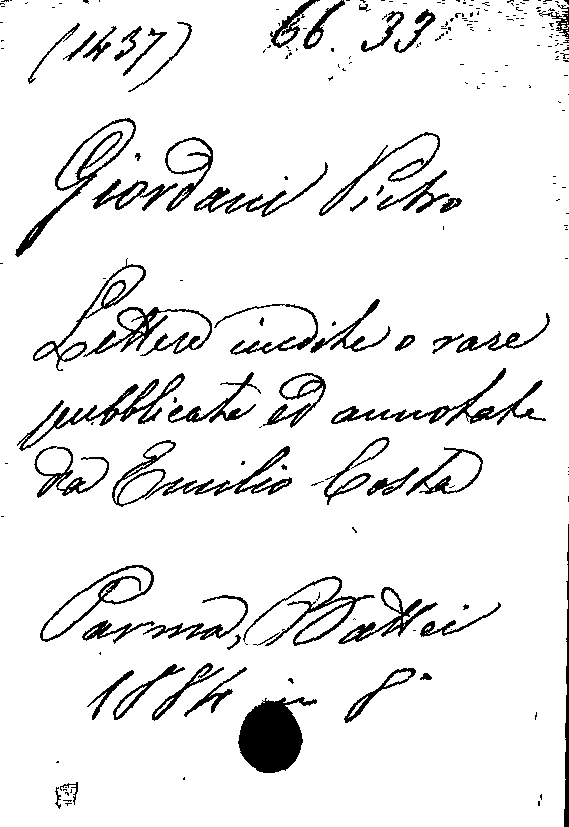 (1437) 66. 33
Giordani Pietro
Lettere inedite o rare
pubblicate ed annotate
da Emilio Costa
Parma, Battei
1884 in 8°